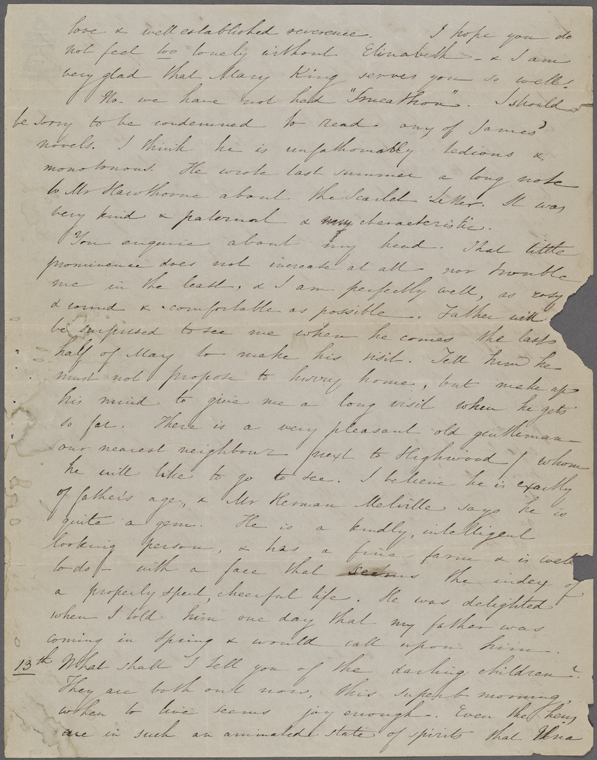 love & well established reverence. I hope you do
not feel too lonely without Elizabeth - & I am
very glad that Mary King serves you so well.
No. we have not had "Smeathon". I should
be sorry to be condemned to read any of James'
novels. I think he is unfathomably tedious &
monotonous. He wrote last summer a long note
to Mr Hawthorne about the Scarlet Letter. It was
very kind & paternal & characteristic.
You enquire about my head. That little
prominence does not increase at all, nor trouble
me in the least, & I am perfectly well, as rosy
& round & comfortable as possible. Father will
be surprised to see me when he comes the last
half of May to make his visit. Tell him he
must not propose to hurry home, but make up
his mind to give me a long visit when he gets
so far. There is a very pleasant old gentleman
our nearest neighbour (next to Highwood) whom
he will like to go to see. I believe he is exactly
of father's age, & Mr Herman Melville says he is
quite a gem. He is a kindly, intelligent
looking person, & has a fine farm & is well
to do - with a face that seems the index of
a properly spent, cheerful life. He was delighted
when I told him one day that my father was
coming in Spring & would call upon him.
13th What shall I tell you of the darling children?
They are both out now, this superb morning
when to live seems joy enough. Even the hens
are in such an animated state of spirits that Una